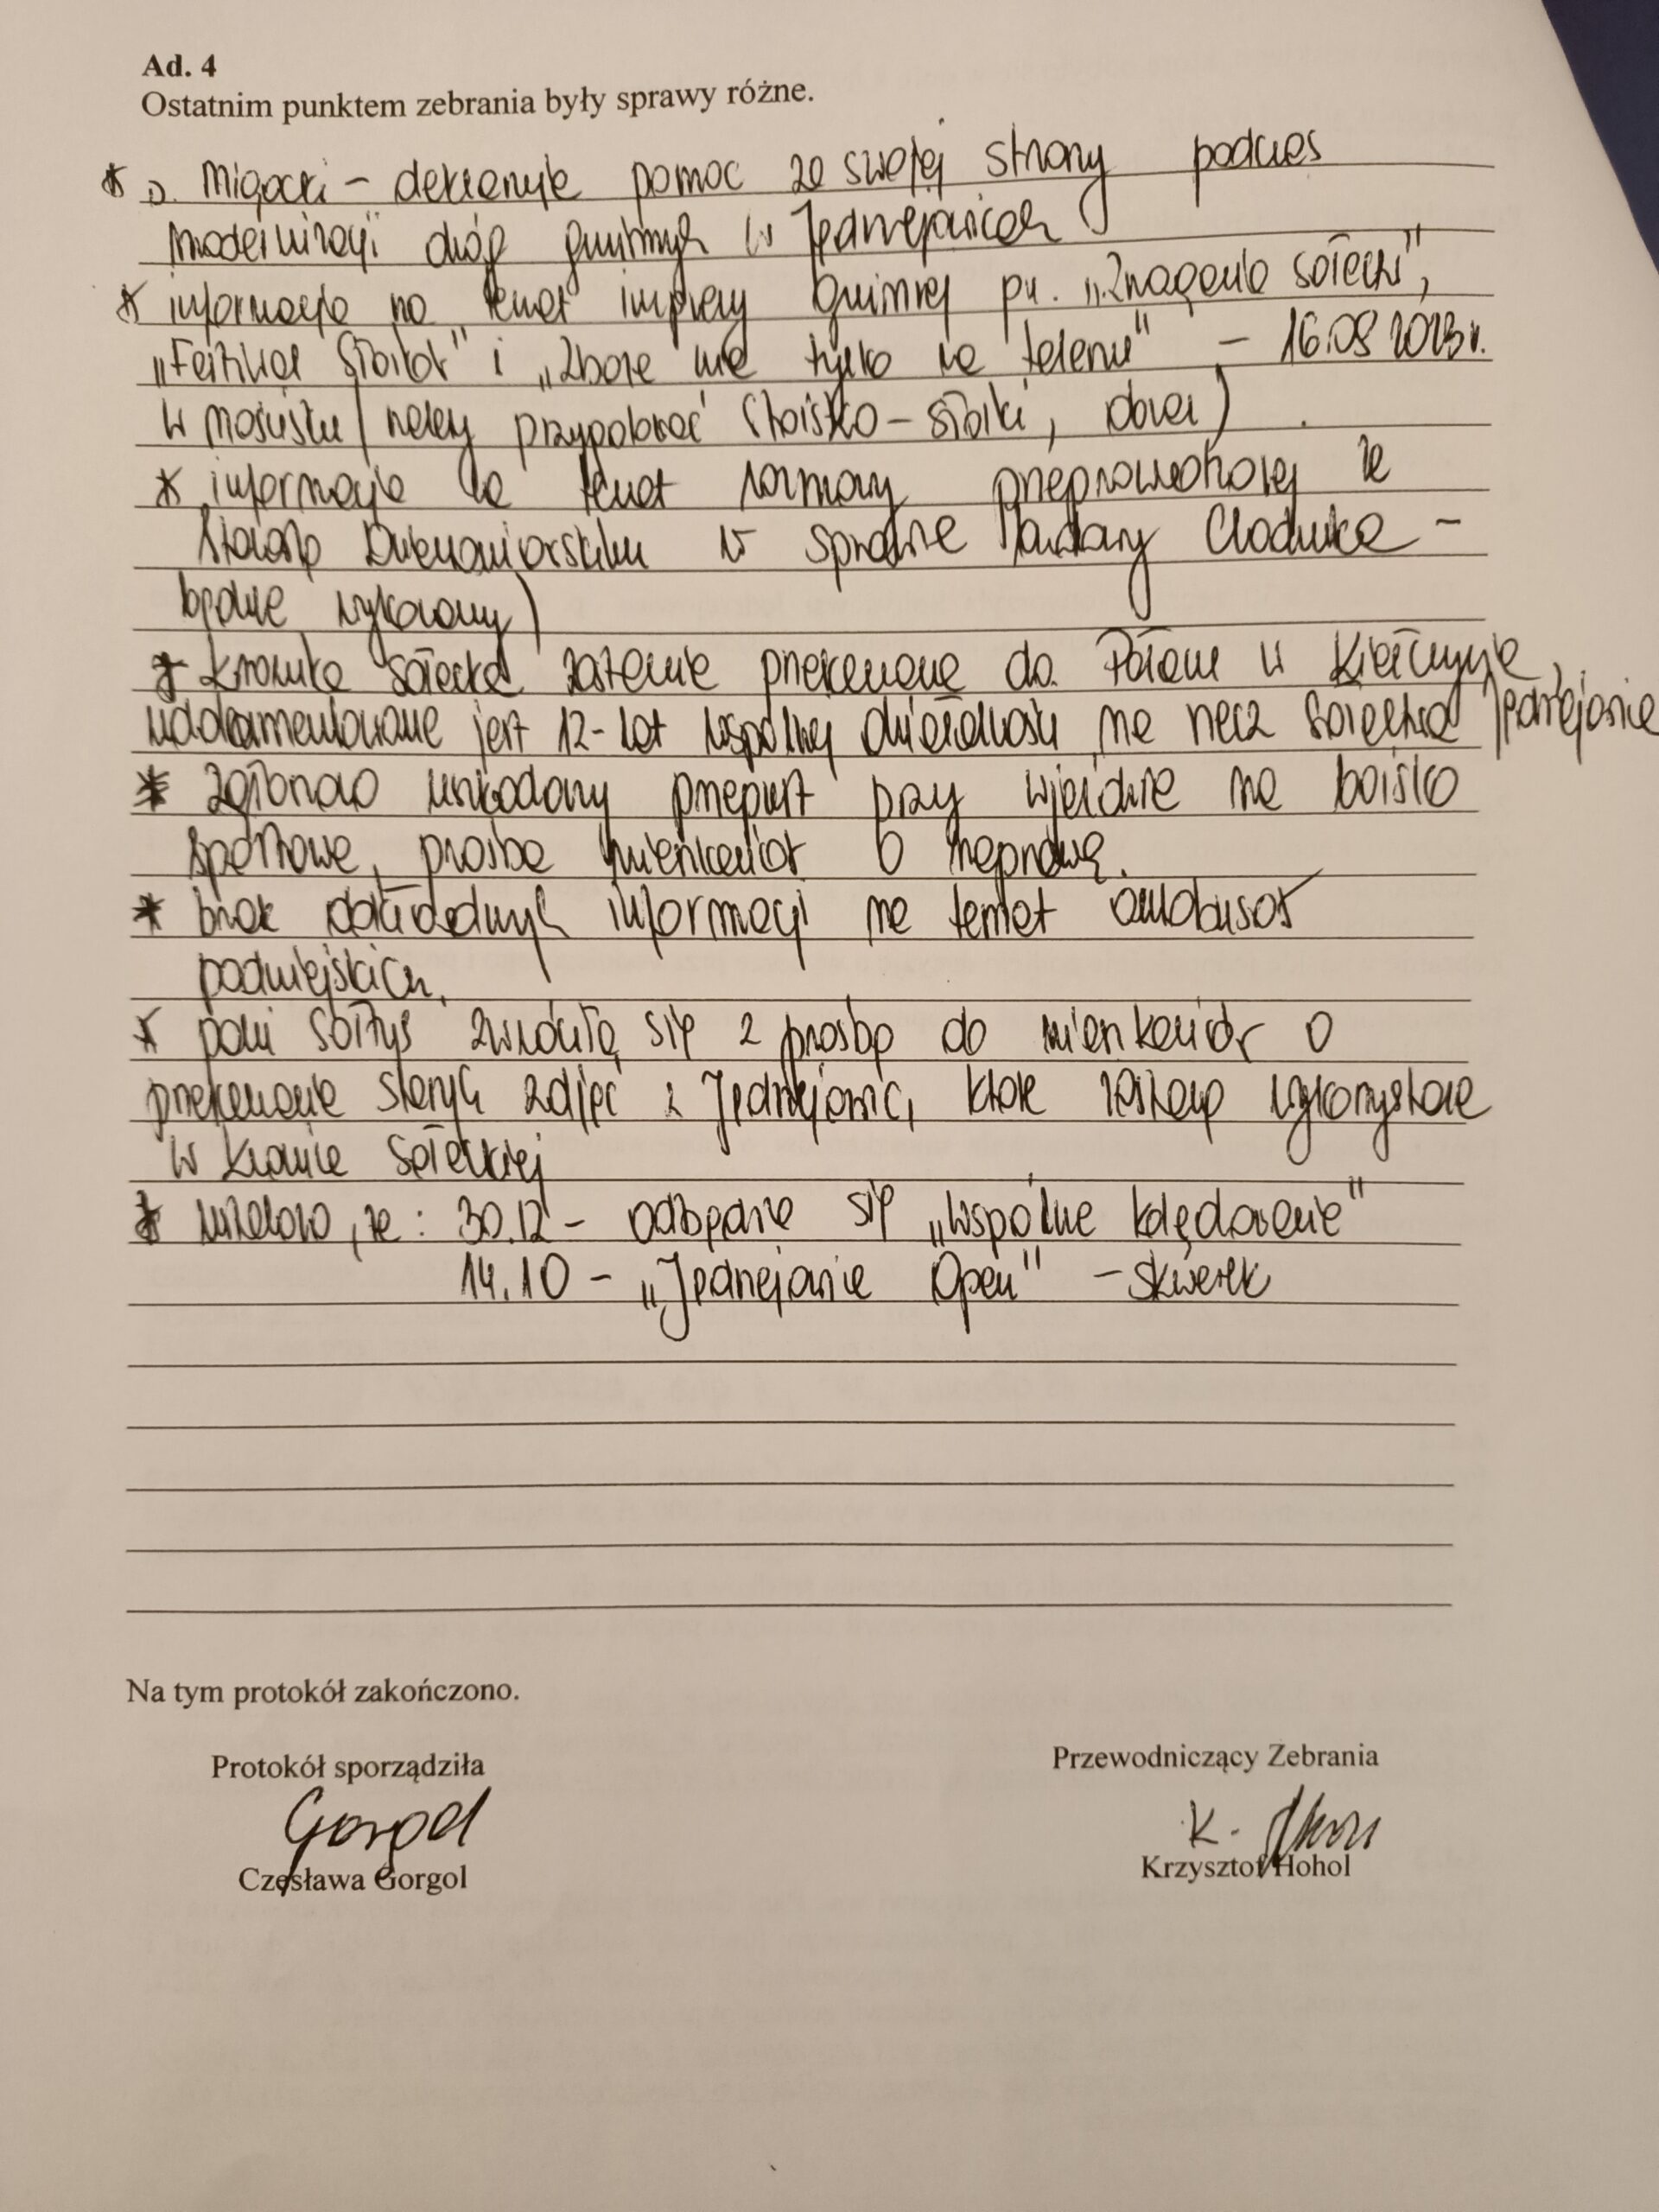 Ad. 4
Ostatnim punktem zebrania były sprawy różne.
* p. Migacki – deklaruje pomoc ze swojej strony podczas
modernizacji dróg gminnych w Jędrzejowicach
* informacja na temat imprezy gminnej pn. „Zmagania sołeckie",
„Festiwal Stołów" i „Zboże nie tylko na talerzu" – 16.09 2023 r.
w Mościsku (należy przygotować stoisko – stolik, obrus) .
* informacja na temat rozmowy przeprowadzonej ze
Starostą Dzierżoniowskim w sprawie chodnika –
będzie wykonany)
* Kronika Sołecka zostanie przekazana do Pałacu w Kiełczynie,
udokumentowane jest 12-lat wspólnej działalności na rzecz Sołectwa Jędrzejowice
* zgłoszono uszkodzony przepust przy wjeździe na boisko
sportowe, prośba mieszkańców o naprawę.
* brak dokładnych informacji na temat autobusów
podmiejskich.
* pani sołtys zwróciła się z prośbą do mieszkańców o
przekazanie starych zdjęć z Jędrzejowic, które zostaną wykorzystane
w Kronice Sołeckiej
* ustalono, że : 30.12 – odbędzie się „Wspólne kolędowanie"
14.10 – „Jędrzejowice Open" – skwerek
Na tym protokół zakończono.
Protokół sporządziła Przewodniczący Zebrania
Gorgol K. Hohol
Czesława Gorgol Krzysztof Hohol